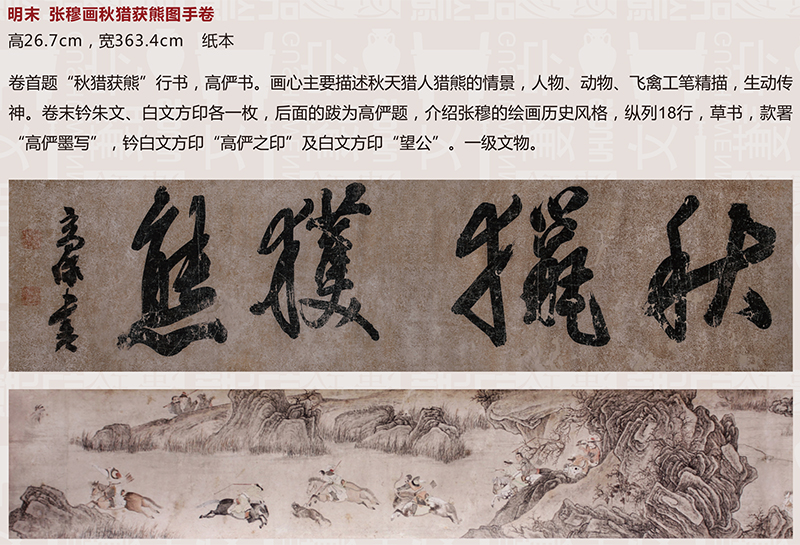 明末 张穆画秋猎获熊图手卷
高26.7cm，宽363.4cm 纸本
卷首题“秋猎获熊”行书，高俨书。画心主要描述秋天猎人猎熊的情景，人物、动物、飞禽工笔精描，生动传
神。卷末钤朱文、白文方印各一枚，后面的跋为高俨题，介绍张穆的绘画历史风格，纵列18行，草书，款署
“高俨墨写”，钤白文方印“高俨之印”及白文方印“望公”。一级文物。
秋獵獲熊
高俨書